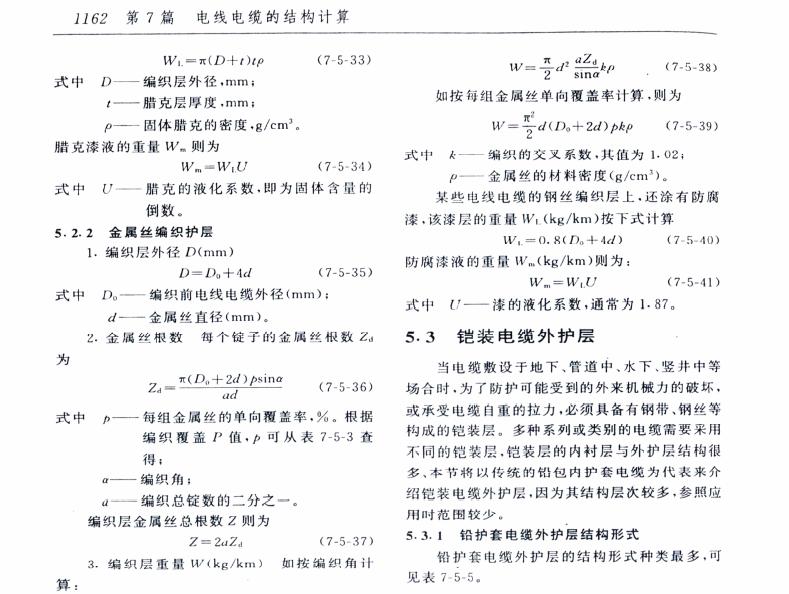 1162 第7篇 电线电缆的结构计算
W_L=π(D+t)tρ (7-5-33)
式中 D——编织层外径,mm;
t——腊克层厚度,mm;
ρ——固体腊克的密度,g/cm³。
腊克漆液的重量 W_m 则为
W_m=W_LU (7-5-34)
式中 U——腊克的液化系数,即为固体含量的
倒数。
5.2.2 金属丝编织护层
1. 编织层外径 D(mm)
D=D₀+4d (7-5-35)
式中 D₀——编织前电线电缆外径(mm);
d——金属丝直径(mm)。
2. 金属丝根数 每个锭子的金属丝根数 Z_d
为
Z_d=π(D₀+2d)psinα/ad (7-5-36)
式中 p——每组金属丝的单向覆盖率,%。根据
编织覆盖 P 值,p 可从表 7-5-3 查
得;
α——编织角;
a——编织总锭数的二分之一。
编织层金属丝总根数 Z 则为
Z=2aZ_d (7-5-37)
3. 编织层重量 W(kg/km) 如按编织角计
算:
W=π/2 d² aZ_d/sinα kρ (7-5-38)
如按每组金属丝单向覆盖率计算,则为
W=π²/2 d(D₀+2d)pkρ (7-5-39)
式中 k——编织的交叉系数,其值为 1.02;
ρ——金属丝的材料密度(g/cm³)。
某些电线电缆的钢丝编织层上,还涂有防腐
漆,该漆层的重量 W_L(kg/km)按下式计算
W_L=0.8(D₀+4d) (7-5-40)
防腐漆液的重量 W_m(kg/km)则为:
W_m=W_LU (7-5-41)
式中 U——漆的液化系数,通常为 1.87。
5.3 铠装电缆外护层
当电缆敷设于地下、管道中、水下、竖井中等
场合时,为了防护可能受到的外来机械力的破坏,
或承受电缆自重的拉力,必须具备有钢带、钢丝等
构成的铠装层。多种系列或类别的电缆需要采用
不同的铠装层,铠装层的内衬层与外护层结构很
多、本节将以传统的铅包内护套电缆为代表来介
绍铠装电缆外护层,因为其结构层次较多,参照应
用时范围较少。
5.3.1 铅护套电缆外护层结构形式
铅护套电缆外护层的结构形式种类最多,可
见表 7-5-5。